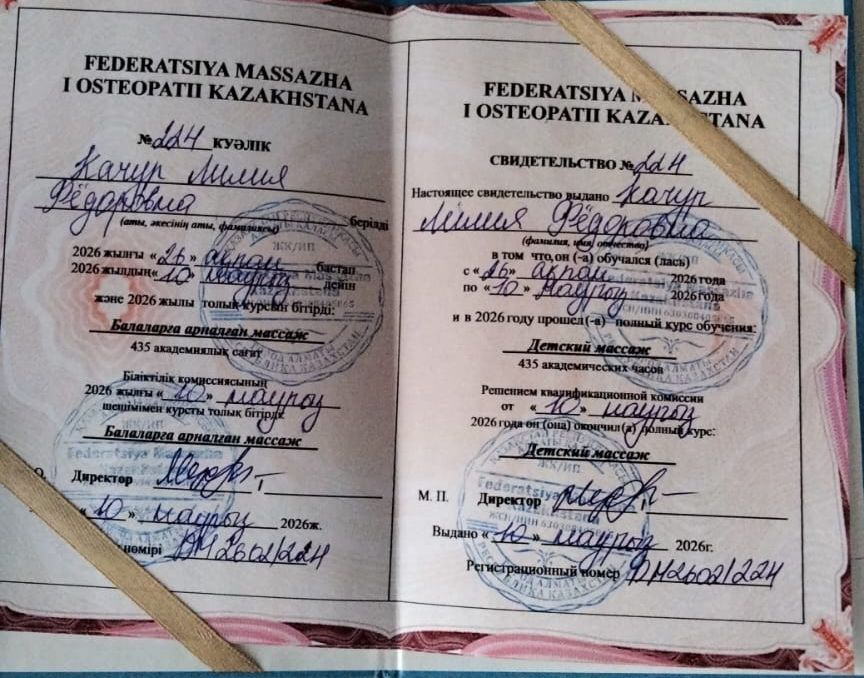 FEDERATSIYA MASSAZHA
I OSTEOPATII KAZAKHSTANA
№ 224 КУӘЛІК
Качур Лилия
Фёдоровна берілді
(аты, әкесінің аты, фамилиясы)
2026 жылғы «26» ақпан бастап
2026 жылдың «10» наурыз дейін
және 2026 жылы толық курсын бітірді:
Балаларга арналган массаж
435 академиялық сағат
Біліктілік комиссиясының
2026 жылғы «10» наурыз
шешімімен курсты толық бітірді
Балаларга арналган массаж
Директор
«10» наурыз 2026ж.
нөмірі ДМ2602/224
FEDERATSIYA MASSAZHA
I OSTEOPATII KAZAKHSTANA
СВИДЕТЕЛЬСТВО № 224
Настоящее свидетельство выдано Качур
Лилия Фёдоровна
(фамилия, имя, отчество)
в том что,он (-а) обучался (лась)
с «26» ақпан 2026 года
по «10» наурыз 2026года
и в 2026 году прошел(-а) полный курс обучения:
Детский массаж
435 академических часов
Решением квалификационной комиссии
от «10» наурыз
2026 года он (она) окончил(а) полный курс:
Детский массаж
М. П. Директор
Выдано «10» наурыз 2026г.
Регистрационный номер ДМ2602/224